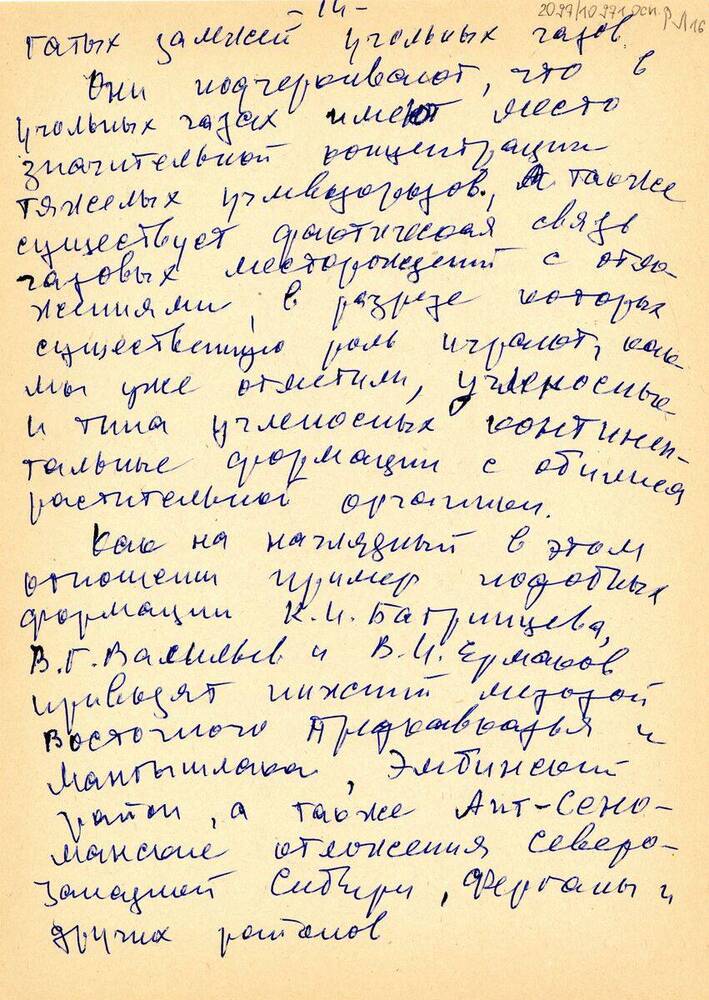 - 14 -
гатых залежей угольных газов.
Они подчеркивают, что в
угольных газах имеют место
значительной концентрации
тяжелых углеводородов, а также
существует фактическая связь
газовых месторождений с отло-
жениями, в разрезе которых
существенную роль играют, как
мы уже отметили, угленосные
и типа угленосных континен-
тальные формации с обилием
растительной органики.
Как на наглядный в этом
отношении пример подобных
формации К.И. Багринцева,
В.Г. Васильев и В.И. Ермаков
приводят нижний мезозой
Восточного Предкавказья и
Мангышлака, Эмбинский
район, а также Апт-Сено-
манские отложения Северо-
Западной Сибири, Ферганы и
других районов